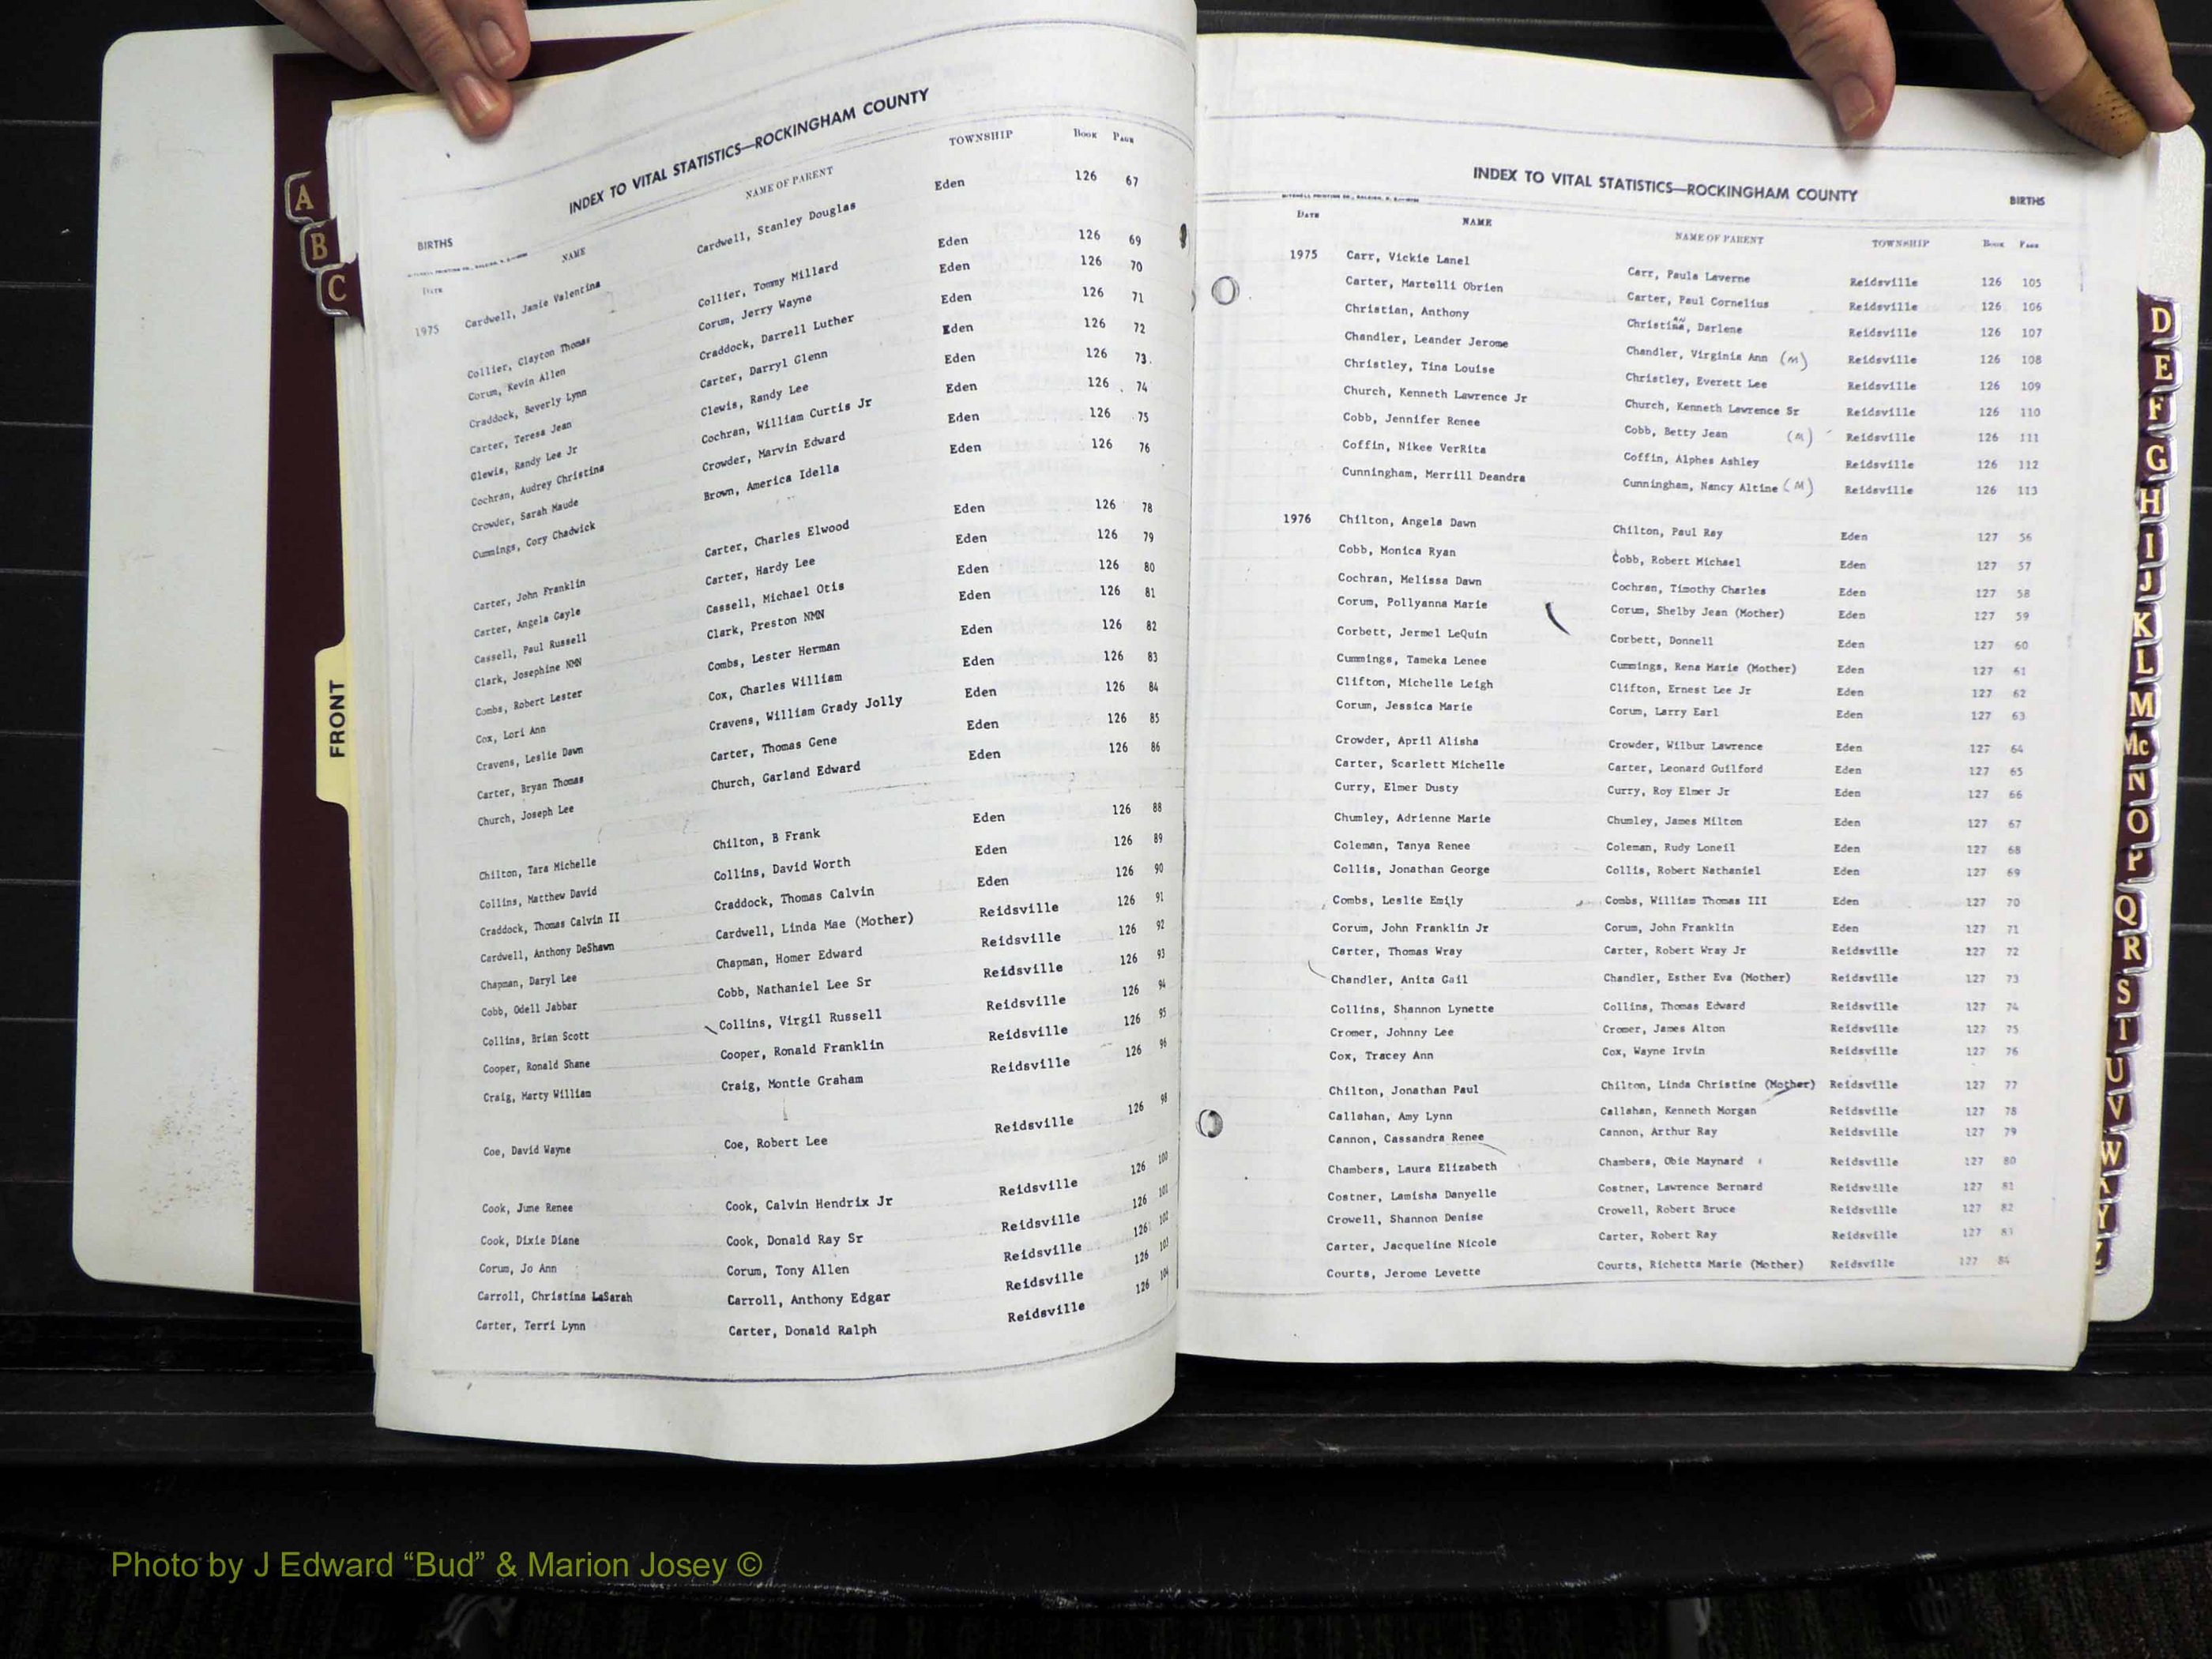 A
B
C
FRONT
INDEX TO VITAL STATISTICS—ROCKINGHAM COUNTY
BIRTHS
DATE NAME NAME OF PARENT TOWNSHIP BOOK PAGE
1975 Cardwell, Jamie Valentina Cardwell, Stanley Douglas Eden 126 67
Collier, Clayton Thomas Collier, Tommy Millard Eden 126 69
Corum, Kevin Allen Corum, Jerry Wayne Eden 126 70
Craddock, Beverly Lynn Craddock, Darrell Luther Eden 126 71
Carter, Teresa Jean Carter, Darryl Glenn Eden 126 72
Clewis, Randy Lee Jr Clewis, Randy Lee Eden 126 73
Cochran, Audrey Christina Cochran, William Curtis Jr Eden 126 74
Crowder, Sarah Maude Crowder, Marvin Edward Eden 126 75
Cummings, Cory Chadwick Brown, America Idella Eden 126 76
Carter, John Franklin Carter, Charles Elwood Eden 126 78
Carter, Angela Gayle Carter, Hardy Lee Eden 126 79
Cassell, Paul Russell Cassell, Michael Otis Eden 126 80
Clark, Josephine NMN Clark, Preston NMN Eden 126 81
Combs, Robert Lester Combs, Lester Herman Eden 126 82
Cox, Lori Ann Cox, Charles William Eden 126 83
Cravens, Leslie Dawn Cravens, William Grady Jolly Eden 126 84
Carter, Bryan Thomas Carter, Thomas Gene Eden 126 85
Church, Joseph Lee Church, Garland Edward Eden 126 86
Chilton, Tara Michelle Chilton, B Frank Eden 126 88
Collins, Matthew David Collins, David Worth Eden 126 89
Craddock, Thomas Calvin II Craddock, Thomas Calvin Eden 126 90
Cardwell, Anthony DeShawn Cardwell, Linda Mae (Mother) Reidsville 126 91
Chapman, Daryl Lee Chapman, Homer Edward Reidsville 126 92
Cobb, Odell Jabbar Cobb, Nathaniel Lee Sr Reidsville 126 93
Collins, Brian Scott Collins, Virgil Russell Reidsville 126 94
Cooper, Ronald Shane Cooper, Ronald Franklin Reidsville 126 95
Craig, Marty William Craig, Montie Graham Reidsville 126 96
Coe, David Wayne Coe, Robert Lee Reidsville 126 98
Cook, June Renee Cook, Calvin Hendrix Jr Reidsville 126 100
Cook, Dixie Diane Cook, Donald Ray Sr Reidsville 126 101
Corum, Jo Ann Corum, Tony Allen Reidsville 126 102
Carroll, Christina LaSarah Carroll, Anthony Edgar Reidsville 126 103
Carter, Terri Lynn Carter, Donald Ralph Reidsville 126 104
INDEX TO VITAL STATISTICS—ROCKINGHAM COUNTY
BIRTHS
DATE NAME NAME OF PARENT TOWNSHIP BOOK PAGE
1975 Carr, Vickie Lanel Carr, Paula Laverne Reidsville 126 105
Carter, Martelli Obrien Carter, Paul Cornelius Reidsville 126 106
Christian, Anthony Darlene Reidsville 126 107
Chandler, Leander Jerome Chandler, Virginia Ann (M) Reidsville 126 108
Christley, Tina Louise Christley, Everett Lee Reidsville 126 109
Church, Kenneth Lawrence Jr Church, Kenneth Lawrence Sr Reidsville 126 110
Cobb, Jennifer Renee Cobb, Betty Jean (M) Reidsville 126 111
Coffin, Nikee VerRita Coffin, Alphes Ashley Reidsville 126 112
Cunningham, Merrill Deandra Cunningham, Nancy Altine (M) Reidsville 126 113
1976 Chilton, Angela Dawn Chilton, Paul Ray Eden 127 56
Cobb, Monica Ryan Cobb, Robert Michael Eden 127 57
Cochran, Melissa Dawn Cochran, Timothy Charles Eden 127 58
Corum, Pollyanna Marie Corum, Shelby Jean (Mother) Eden 127 59
Corbett, Jermel LeQuin Corbett, Donnell Eden 127 60
Cummings, Tameka Lenee Cummings, Rena Marie (Mother) Eden 127 61
Clifton, Michelle Leigh Clifton, Ernest Lee Jr Eden 127 62
Corum, Jessica Marie Corum, Larry Earl Eden 127 63
Crowder, April Alisha Crowder, Wilbur Lawrence Eden 127 64
Carter, Scarlett Michelle Carter, Leonard Guilford Eden 127 65
Curry, Elmer Dusty Curry, Roy Elmer Jr Eden 127 66
Chumley, Adrienne Marie Chumley, James Milton Eden 127 67
Coleman, Tanya Renee Coleman, Rudy Loneil Eden 127 68
Collis, Jonathan George Collis, Robert Nathaniel Eden 127 69
Combs, Leslie Emily Combs, William Thomas III Eden 127 70
Corum, John Franklin Jr Corum, John Franklin Eden 127 71
Carter, Thomas Wray Carter, Robert Wray Jr Reidsville 127 72
Chandler, Anita Gail Chandler, Esther Eva (Mother) Reidsville 127 73
Collins, Shannon Lynette Collins, Thomas Edward Reidsville 127 74
Cromer, Johnny Lee Cromer, James Alton Reidsville 127 75
Cox, Tracey Ann Cox, Wayne Irvin Reidsville 127 76
Chilton, Jonathan Paul Chilton, Linda Christine (Mother) Reidsville 127 77
Callahan, Amy Lynn Callahan, Kenneth Morgan Reidsville 127 78
Cannon, Cassandra Renee Cannon, Arthur Ray Reidsville 127 79
Chambers, Laura Elizabeth Chambers, Obie Maynard Reidsville 127 80
Costner, Lamisha Danyelle Costner, Lawrence Bernard Reidsville 127 81
Crowell, Shannon Denise Crowell, Robert Bruce Reidsville 127 82
Carter, Jacqueline Nicole Carter, Robert Ray Reidsville 127 83
Courts, Jerome Levette Courts, Richetta Marie (Mother) Reidsville 127 84
D
E
F
G
H
I
J
K
L
M
Mc
N
O
P
Q
R
S
T
U
V
W
Y
Photo by J Edward “Bud” & Marion Josey ©